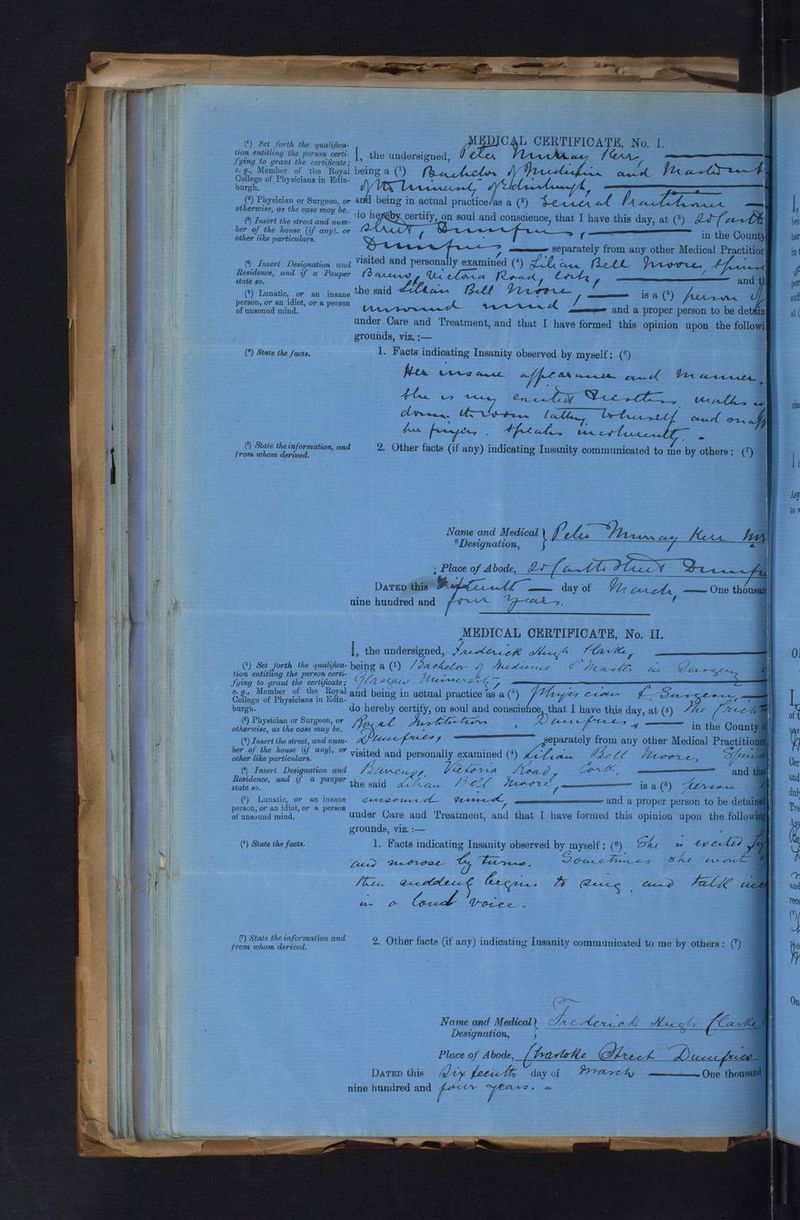 MEDICAL CERTIFICATE, No. I.
(¹) Set forth the qualifica-
tion entitling the person certi-
fying to grant the certificate;
e. g., Member of the Royal
College of Physicians in Edin-
burgh.
(²) Physician or Surgeon, or
otherwise, as the case may be.
(³) Insert the street and num-
ber of the house (if any), or
other like particulars.
(⁴) Insert Designation and
Residence, and if a Pauper
state so.
(⁵) Lunatic, or an insane
person, or an idiot, or a person
of unsound mind.
(⁶) State the facts.
(⁷) State the information, and
from whom derived.
I, the undersigned, Peter Murray Kerr,
being a (¹) Bachelor of Medicine and Master
of the University of Edinburgh,
and being in actual practice as a (²) General Practitioner
do hereby certify, on soul and conscience, that I have this day, at (³) 20 Castle
Street, Dumfries, in the County
Dumfries separately from any other Medical Practitio
visited and personally examined (⁴) Lilian Bell Moore,
Victoria Road, Cork, and th
the said Lilian Bell Moore, is a (⁵) person of
unsound mind and a proper person to be detain
under Care and Treatment, and that I have formed this opinion upon the followi
grounds, viz.:—
1. Facts indicating Insanity observed by myself: (⁶)
Her insane appearance and manner.
She is very excited & restless, walks u
down the room talking to herself and snap
her fingers. Speaks incoherently.
2. Other facts (if any) indicating Insanity communicated to me by others: (⁷)
Name and Medical } Peter Murray Kerr
Designation,
Place of Abode, 20 Castle Street Dumf
DATED this Fifteenth day of March, One thousan
nine hundred and four years.
MEDICAL CERTIFICATE, No. II.
(¹) Set forth the qualifica-
tion entitling the person certi-
fying to grant the certificate;
e. g., Member of the Royal
College of Physicians in Edin-
burgh.
(²) Physician or Surgeon, or
otherwise, as the case may be.
(³) Insert the street, and num-
ber of the house (if any), or
other like particulars.
(⁴) Insert Designation and
Residence, and if a pauper
state so.
(⁵) Lunatic, or an insane
person, or an idiot, or a person
of unsound mind.
(⁶) State the facts.
(⁷) State the information and
from whom derived.
I, the undersigned, Frederick Hugh Clarke,
being a (¹) Bachelor of Medicine & Master in Surgery
Glasgow University,
and being in actual practice as a (²) Physician & Surgeon,
do hereby certify, on soul and conscience, that I have this day, at (³) The Crichton
Royal Institution, Dumfries, in the County of
Dumfries, separately from any other Medical Practitioner
visited and personally examined (⁴) Lilian Bell Moore,
Victoria Road, Cork, and that
the said Lilian Bell Moore, is a (⁵) person
unsound mind, and a proper person to be detained
under Care and Treatment, and that I have formed this opinion upon the following
grounds, viz.:—
1. Facts indicating Insanity observed by myself: (⁶) She is excited
and morose by turns. Sometimes she wont
then suddenly begins to sing, and talk
in a loud voice.
2. Other facts (if any) indicating Insanity communicated to me by others: (⁷)
Name and Medical } Frederick Hugh Clarke
Designation,
Place of Abode, Charlotte Street Dumfries
DATED this Sixteenth day of March One thousand
nine hundred and four years.